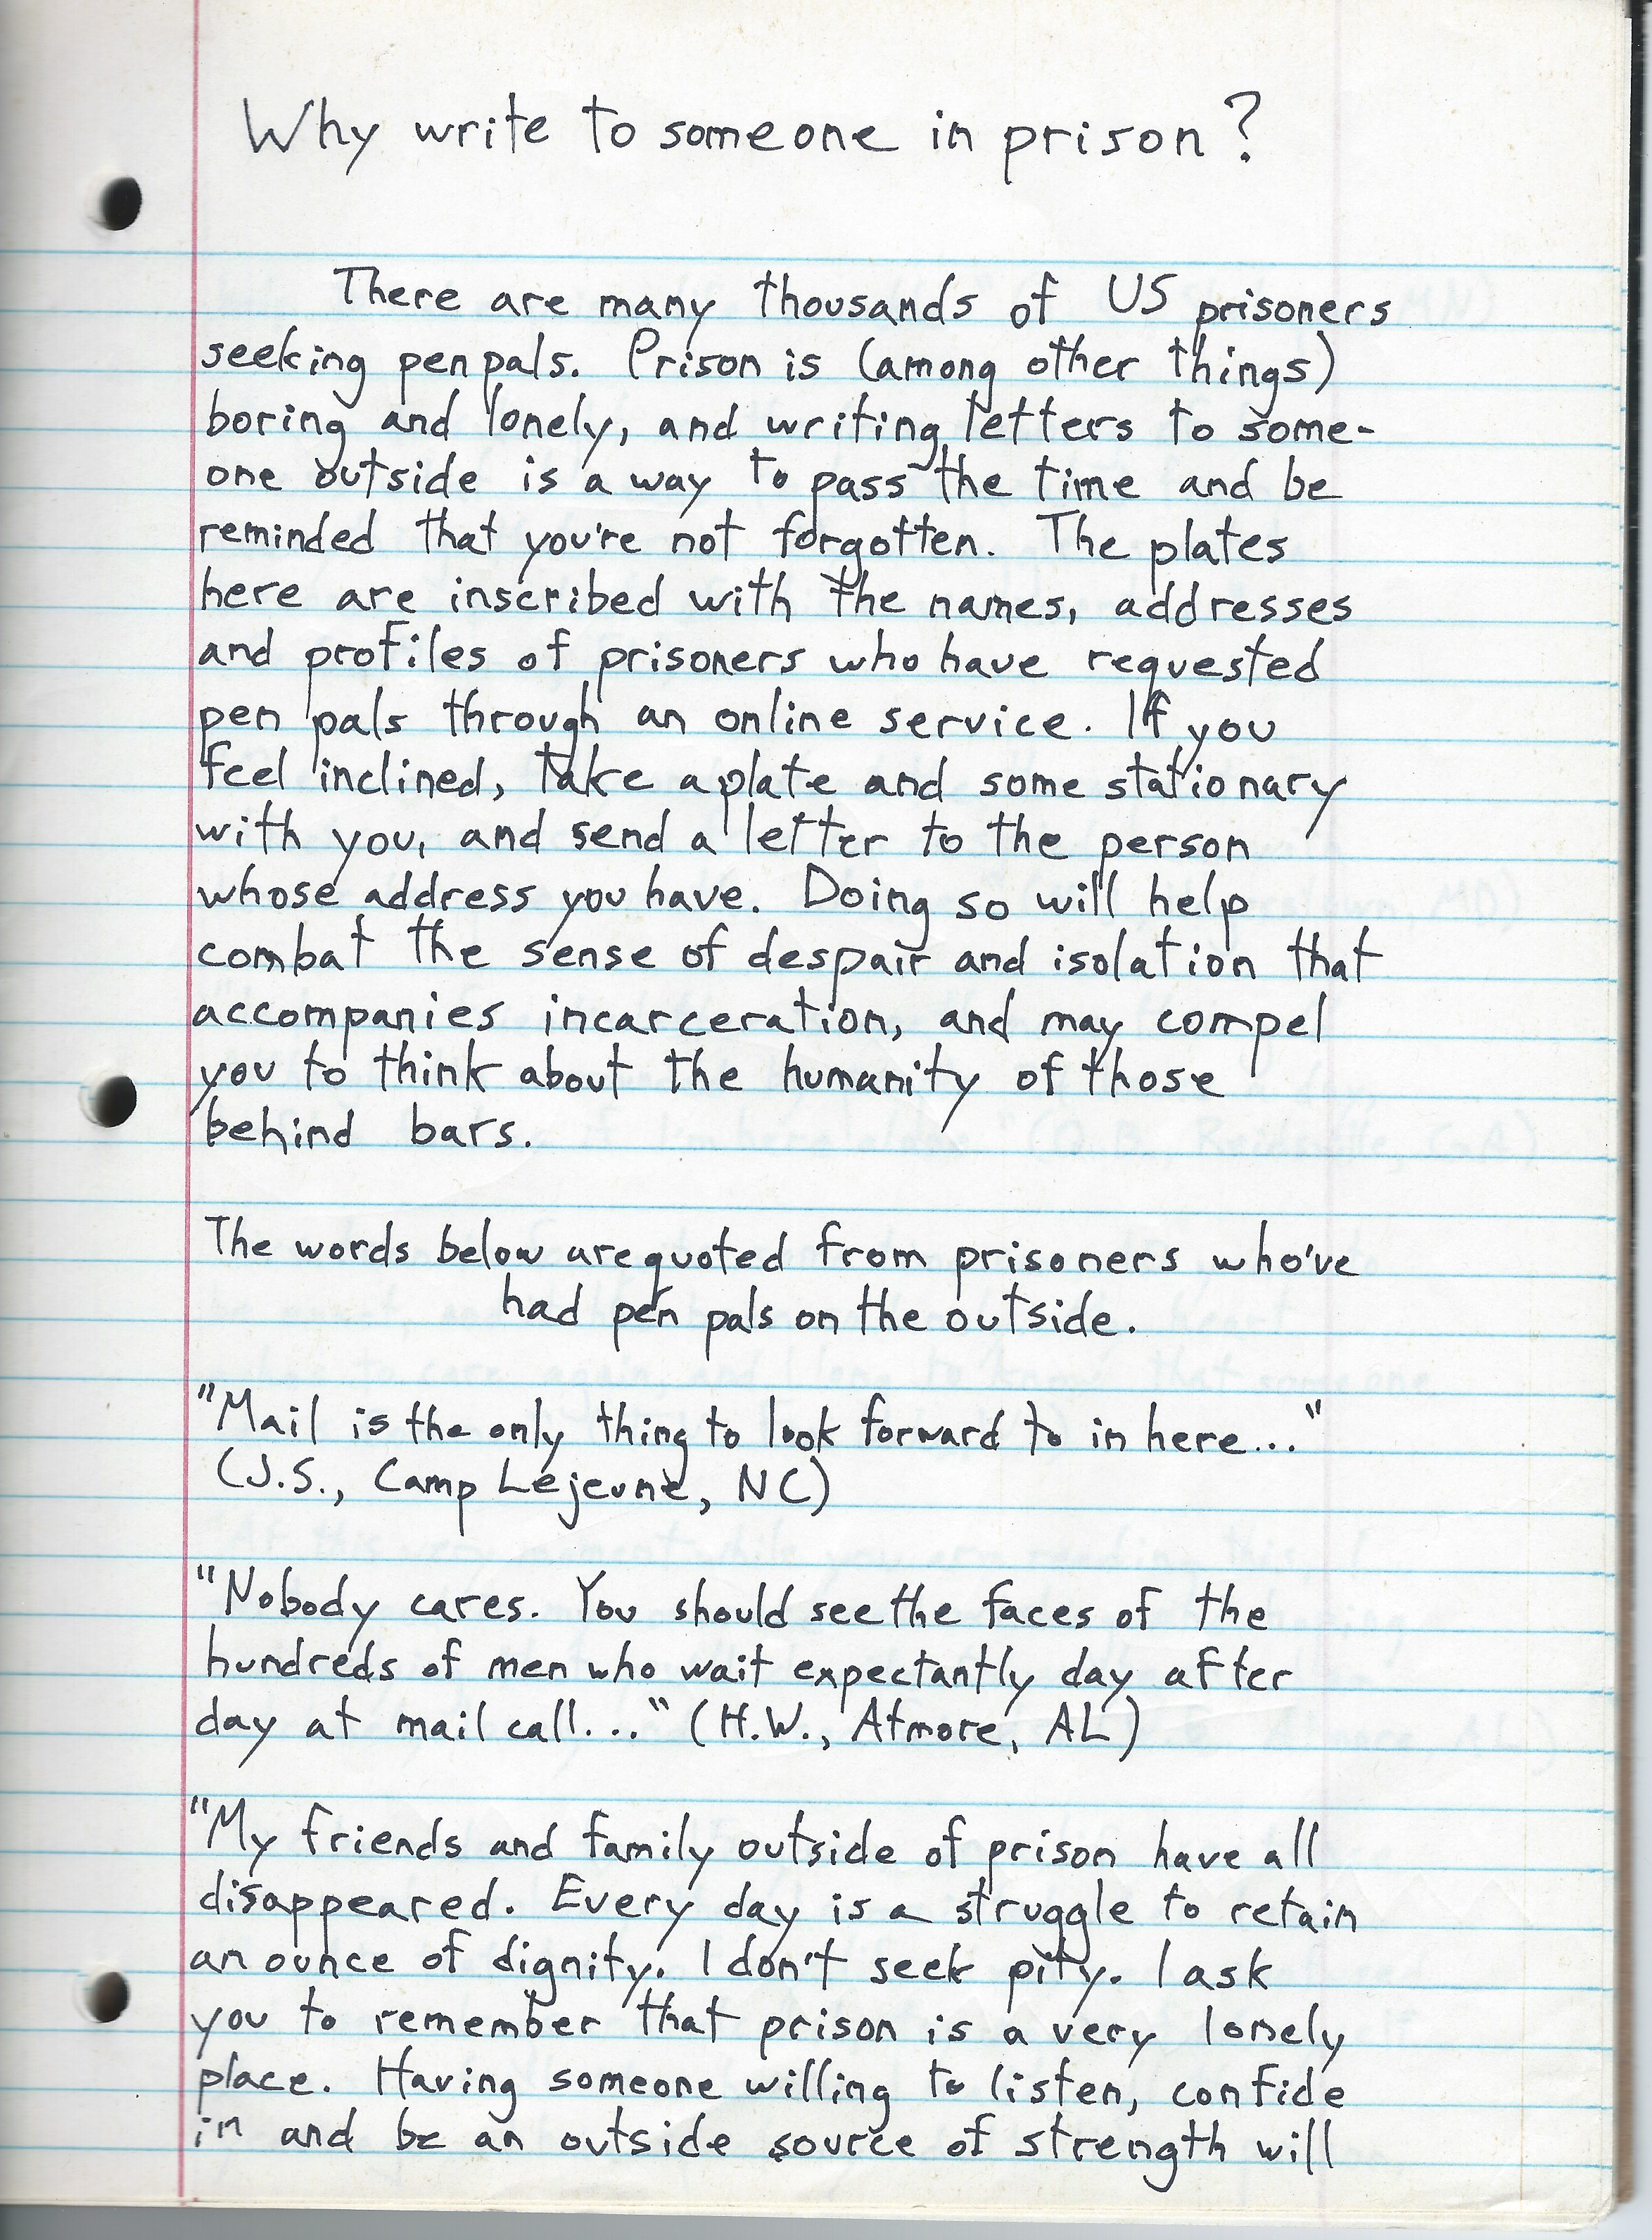 Why write to someone in prison?
There are many thousands of US prisoners
seeking pen pals. Prison is (among other things)
boring and lonely, and writing letters to some-
one outside is a way to pass the time and be
reminded that you're not forgotten. The plates
here are inscribed with the names, addresses
and profiles of prisoners who have requested
pen pals through an online service. If you
feel inclined, take a plate and some stationary
with you, and send a letter to the person
whose address you have. Doing so will help
combat the sense of despair and isolation that
accompanies incarceration, and may compel
you to think about the humanity of those
behind bars.
The words below are quoted from prisoners who've
had pen pals on the outside.
"Mail is the only thing to look forward to in here..."
(J.S., Camp Lejeune, NC)
"Nobody cares. You should see the faces of the
hundreds of men who wait expectantly day after
day at mail call..." (H.W., Atmore, AL)
"My friends and family outside of prison have all
disappeared. Every day is a struggle to retain
an ounce of dignity. I don't seek pity. I ask
you to remember that prison is a very lonely
place. Having someone willing to listen, confide
in and be an outside source of strength will